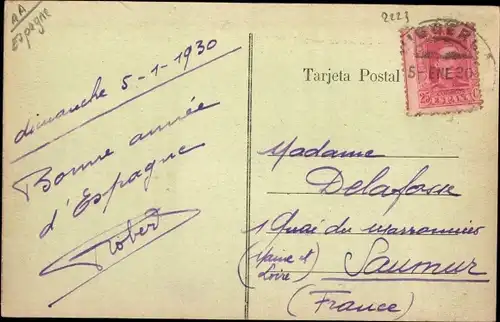 AA
Espagne
2221
dimanche 5-1-1930
Bonne année
d'Espagne
Robert
Tarjeta Postal
5-ENE 30
25
Madame
Delafosse
1 Quai du Marronnier
(Maine et
Loire)
Saumur
(France)